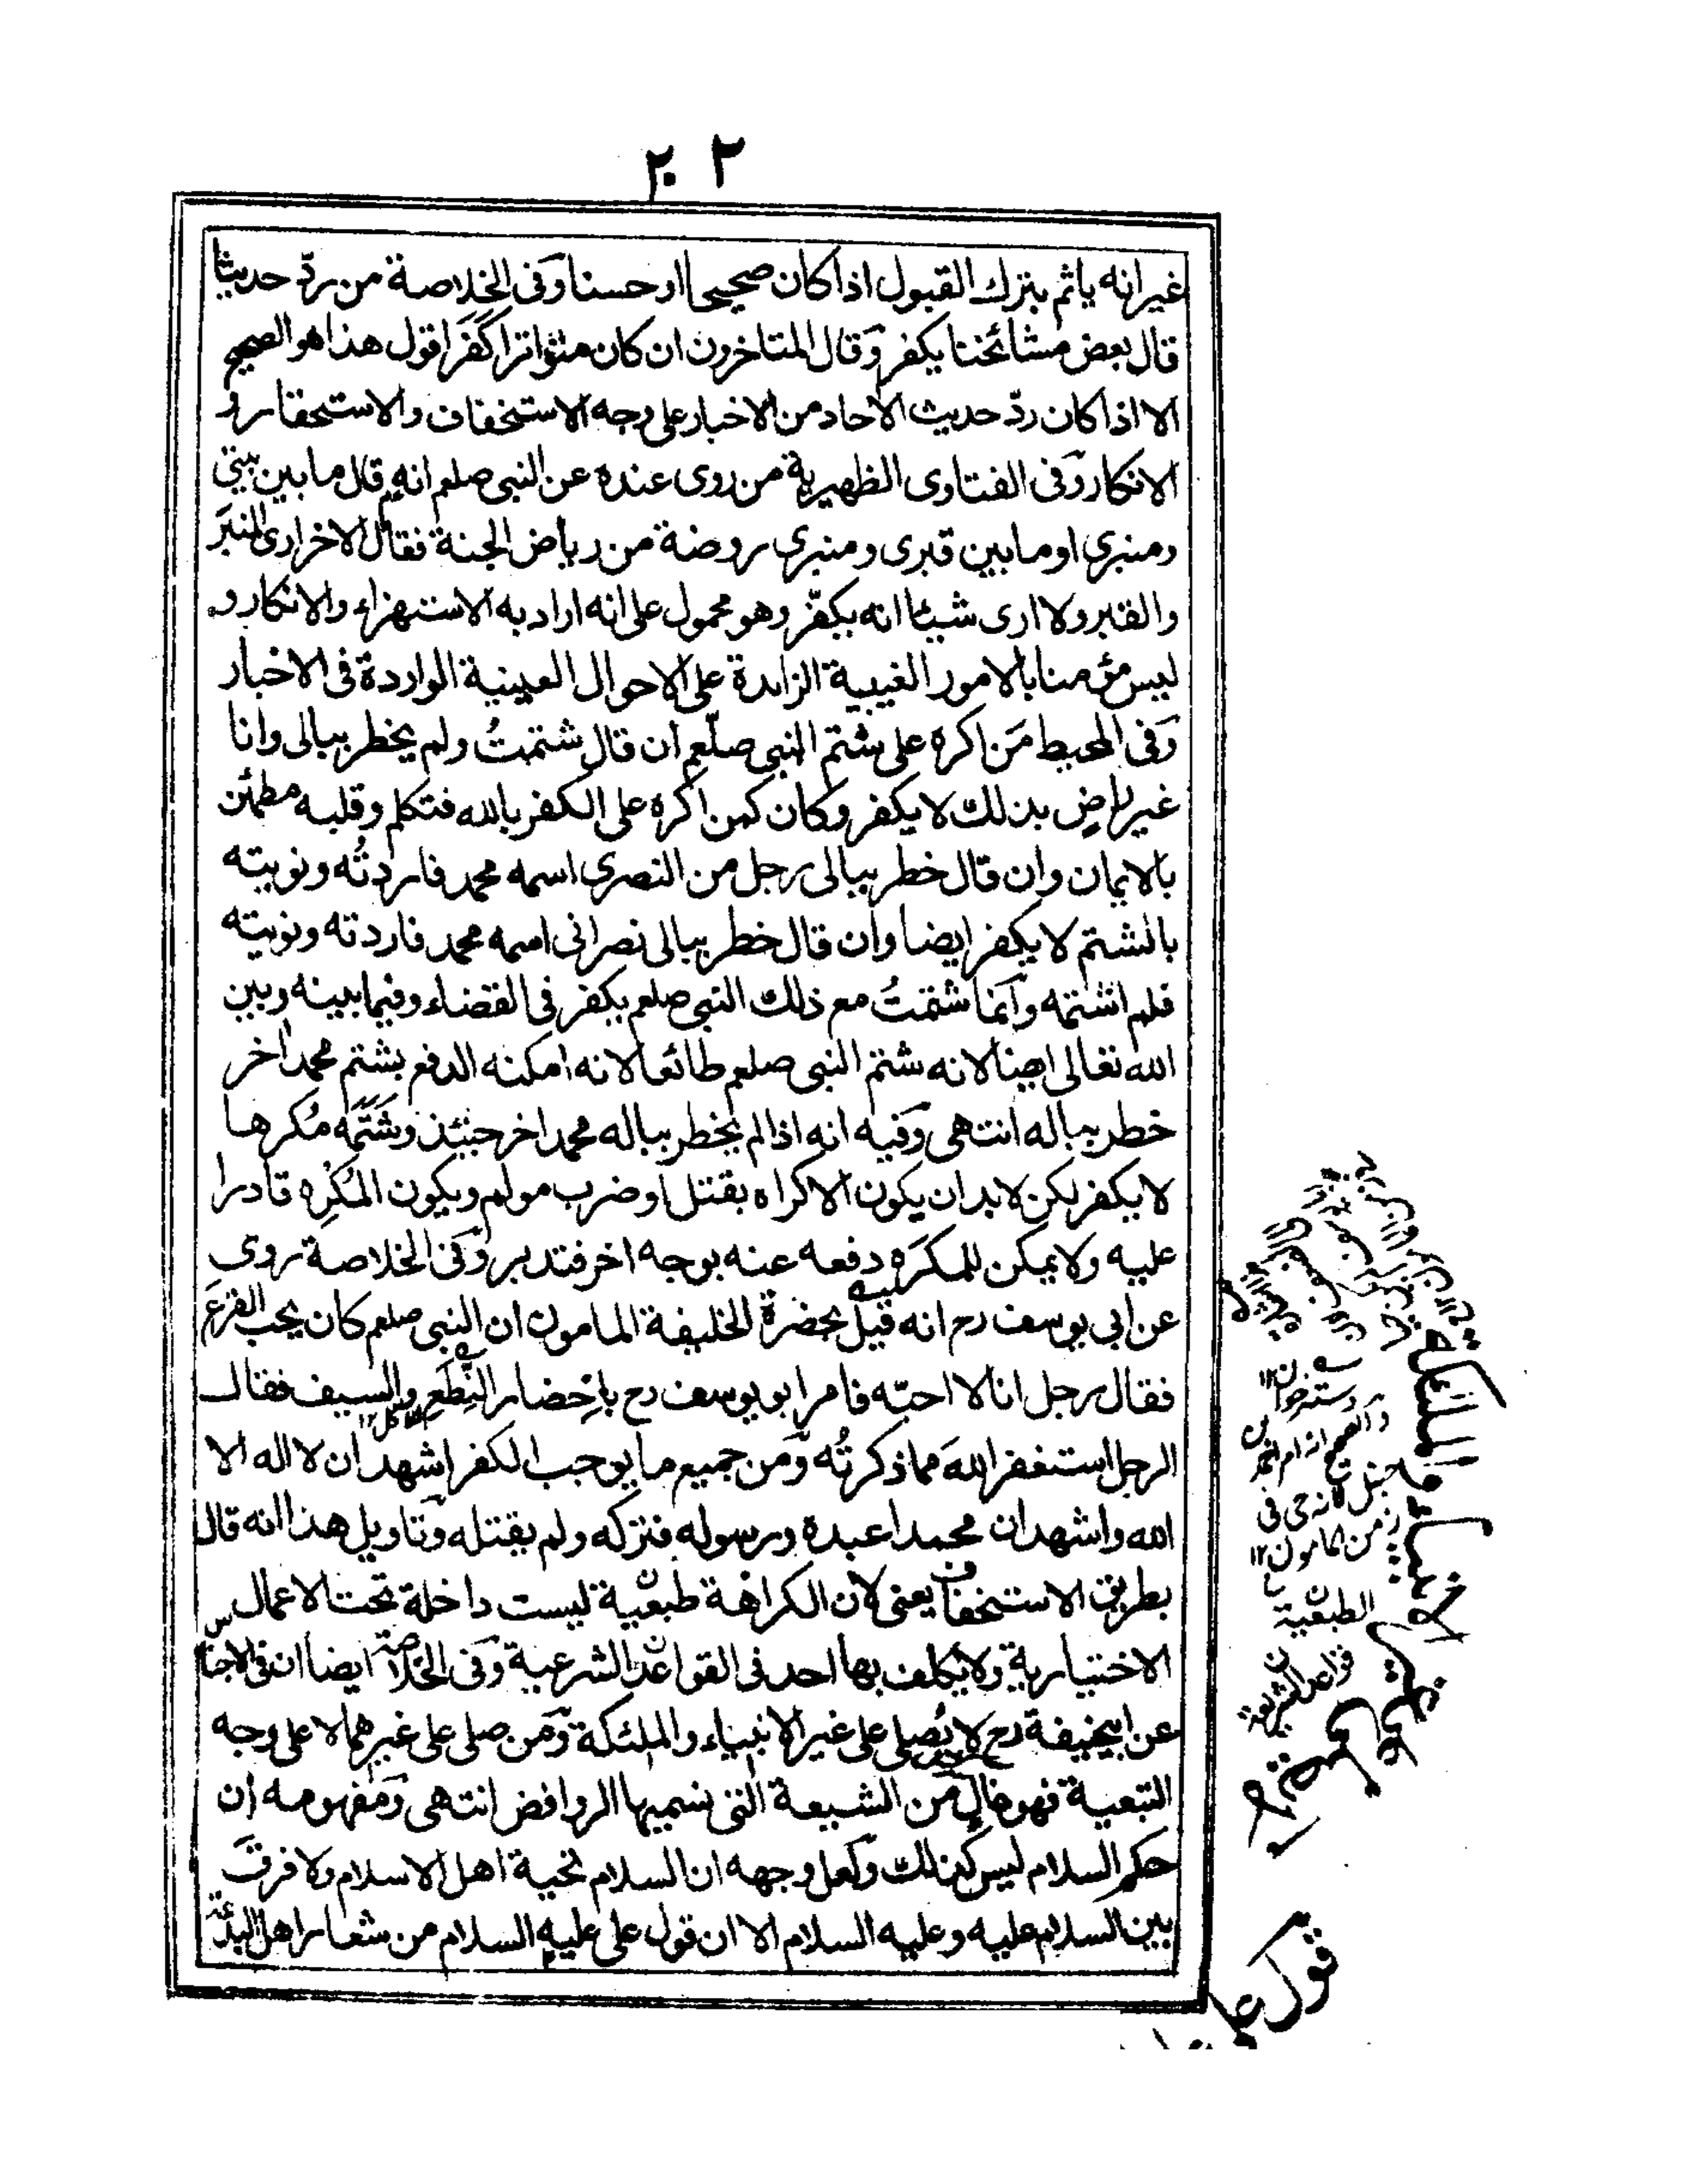 ٢٠٣
غير انه ياثم بترك القبول اذا كان صحيحا او حسنا وفى الخلاصة من ردّ حديثا
قال بعض مشائخنا يكفر وقال المتاخرون ان كان متواترا كفر اقول هذا هو الصحيح
الا اذا كان ردّ حديث الاحاد من الاخبار على وجه الاستخفاف والاستحقار و
الانكار وفى الفتاوى الظهيرية من روى عنده عن النبى صلعم انه قال ما بين بيتى
ومنبرى او ما بين قبرى ومنبرى روضة من رياض الجنة فقال الاخر ارى المنبر
والقبر ولا ارى شيئا انه يكفر وهو محمول على انه اراد به الاستهزاء والانكار و
ليس مؤمنا بالامور الغيبية الزايدة على الاحوال العينية الواردة فى الاخبار
وفى المحيط من اكره على شتم النبى صلعم ان قال شتمتُ ولم يخطر ببالى وانا
غير راضٍ بذلك لا يكفر وكان كمن اكره على الكفر بالله فتكلم وقلبه مطمئن
بالايمان وان قال خطر ببالى رجل من النصرى اسمه محمد فاردتُه ونويته
بالشتم لا يكفر ايضا وان قال خطر ببالى نصرانى اسمه محمد فاردته ونويته
فلم اشتمه وانما شتمتُ مع ذلك النبى صلعم يكفر فى القضاء وفيما بينه وبين
الله تعالى ايضا لانه شتم النبى صلعم طائعا لانه امكنه الدفع بشتم محمد اخر
خطر بباله انتهى وفيه انه اذا لم يخطر بباله محمد اخر حينئذ وشتمه مُكرها
لا يكفر لكن لابد ان يكون الاكراه بقتل او ضرب مولم ويكون المُكرِه قادرا
عليه ولا يمكن للمكرَه دفعه عنه بوجه اخر فتدبر وفى الخلاصة روى
عن ابى يوسف رح انه قيل بحضرة الخليفة المامون ان النبى صلعم كان يحب القرع
فقال رجل انا لا احبّه فامر ابو يوسف رح باِحضار النِّطَعِ والسيف فقال
الرجل استغفر اللهَ مما ذكرتُه ومن جميع ما يوجب الكفر اشهد ان لا اله الا
الله واشهد ان محمدا عبده ورسوله فتركه ولم يقتله وتاويل هذا انه قال
بطريق الاستخفاف يعنى لان الكراهة طبعية ليست داخلة تحت الاعمال
الاختيارية ولا يكلف بها احد فى القواعد الشرعية وفى الخلاصة ايضا ان فى الاجناس
عن ابيحنيفة رح لا يُصلى على غير الانبياء والملئكة ومن صلى على غيرهما لا على وجه
التبعية فهو غالٍ من الشيعة التى نسميها الروافض انتهى ومفهومه ان
حكم السلام ليس كذلك ولعل وجهه ان السلام تحية اهل الاسلام ولا فرق
بين السلام عليه وعليه السلام الا ان قول على عليه السلام من شعار اهل البدعة
والصحيح
من المامون ١٢
الطبعية
قواعد الشريعة
قول على